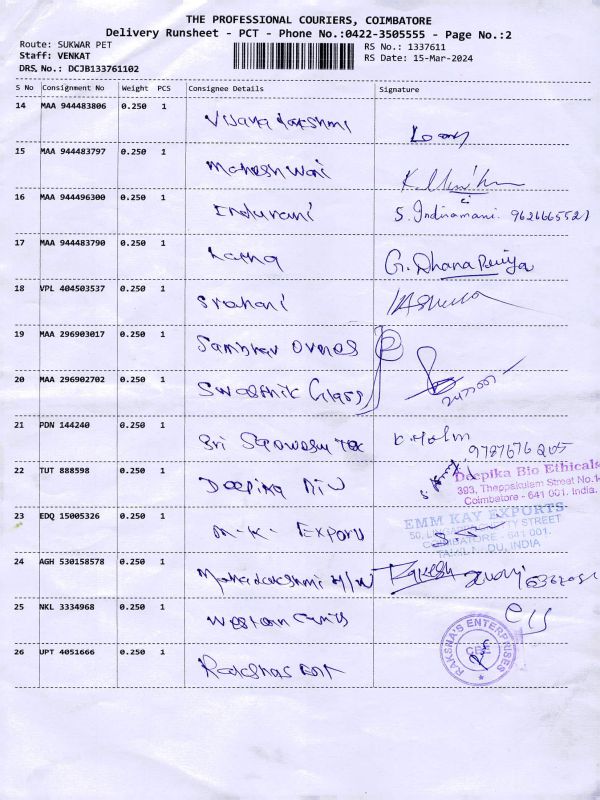 THE PROFESSIONAL COURIERS, COIMBATORE
Delivery Runsheet - PCT - Phone No.:0422-3505555 - Page No.:2
Route: SUKWAR PET
RS No.: 1337611
Staff: VENKAT
RS Date: 15-Mar-2024
DRS, No.: DCJB133761102
S No Consignment No Weight PCS Consignee Details Signature
14 MAA 944483806 0.250 1 Vijaya Lakshmi
15 MAA 944483797 0.250 1 Maheshwari
16 MAA 944496300 0.250 1 Indurani S. Indiramani 9626665521
17 MAA 944483790 0.250 1 Latha G. Dhana Priya
18 VPL 404503537 0.250 1
19 MAA 296903017 0.250 1 Sambhav
20 MAA 296902702 0.250 1 Swasthik Glass
21 PDN 144240 0.250 1 Sri Tex
9787676205
22 TUT 888598 0.250 1 Deepika
Deepika Bio Ethicals
393, Theppakulam Street No.1
Coimbatore - 641 001. India.
23 EDQ 15005326 0.250 1 M.K. Export
EMM KAY EXPORTS
STREET
COIMBATORE - 641 001.
TAMIL NADU, INDIA
24 AGH 530158578 0.250 1 Mahalakshmi H/W Rajesh
25 NKL 3334968 0.250 1 Western
26 UPT 4051666 0.250 1 Rakshas Ent
RAKSHA'S ENTERPRISES
CBE